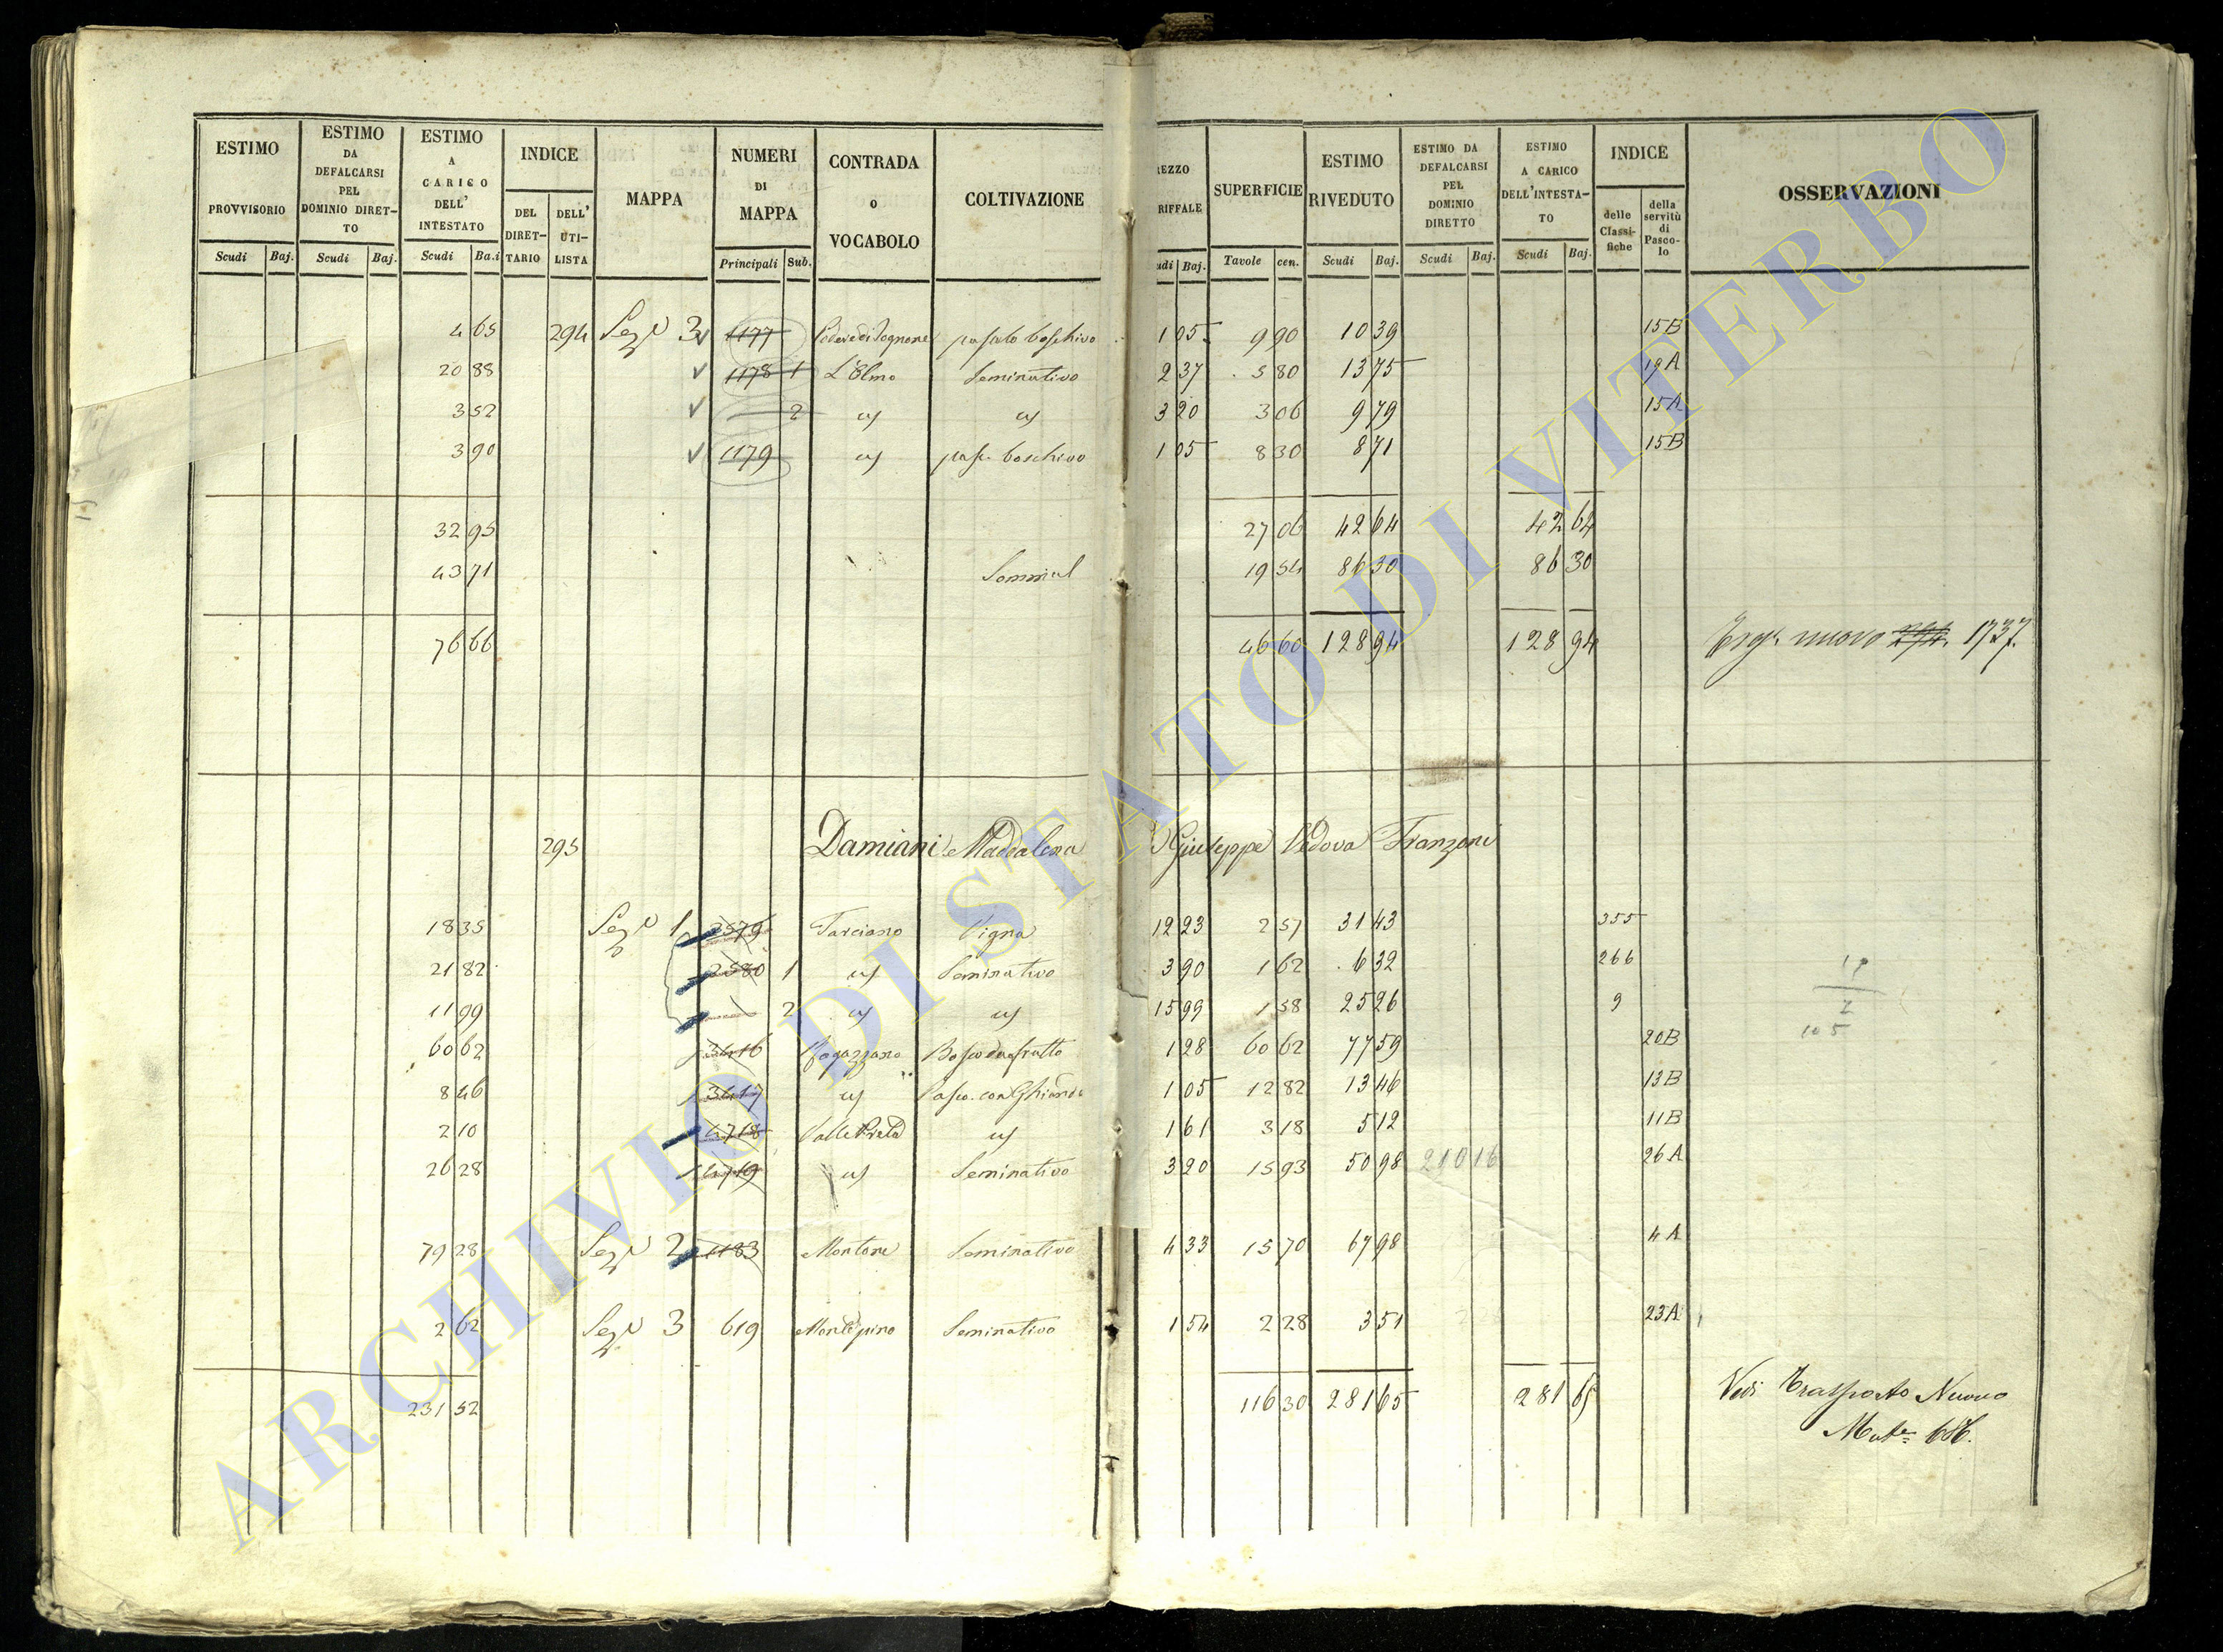 ESTIMO PROVVISORIO ESTIMO DA DEFALCARSI PEL DOMINIO DIRET-TO ESTIMO A CARICO DELL' INTESTATO INDICE DEL DIRET-TARIO DELL' UTI-LISTA MAPPA NUMERI DI MAPPA CONTRADA o VOCABOLO COLTIVAZIONE REZZO RIFFALE SUPERFICIE ESTIMO RIVEDUTO ESTIMO DA DEFALCARSI PEL DOMINIO DIRETTO ESTIMO A CARICO DELL'INTESTA-TO INDICE delle Classi-fiche della servitù di Pasco-lo OSSERVAZIONI
Scudi Baj. Scudi Baj. Scudi Ba.i Principali Sub. udi Baj. Tavole cen. Scudi Baj. Scudi Baj. Scudi Baj.
4 65 294 Sez 3 1177 boschivo 1 05 9 90 10 39 15B
20 88 1178 1 L'Olmo Seminativo 2 37 5 80 13 75 19A
3 52 2 3 20 3 06 9 79 15A
3 90 1179 pas. boschivo 1 05 8 30 8 71 15B
32 95 27 06 42 64 42 64
43 71 19 54 86 30 86 30
76 66 46 60 128 94 128 94 nuovo 294. 1737.
295 Damiani Maddalena Giuseppe Vedova Franzoni
18 35 Sez 1 2579 Tarciano Vigna 12 23 2 57 31 43 355
21 82 2580 1 Seminativo 3 90 1 62 6 32 266
11 99 2 15 99 1 58 25 26 9
60 62 3416 Bosco da frutto 1 28 60 62 77 59 20B
8 46 3417 Pasc. con Ghianda 1 05 12 82 13 46 13B
105
2 10 4718 1 61 3 18 5 12 11B
26 28 4719 Seminativo 3 20 15 93 50 98 210 16 26A
79 28 Sez 2 1183 Montone Seminativo 4 33 15 70 67 98 4A
2 62 Sez 3 619 Montepino Seminativo 1 54 2 28 3 51 23A
231 52 116 30 281 65 281 65 Vedi Trasporto Nuovo
686.
ARCHIVIO DI STATO DI VITERBO